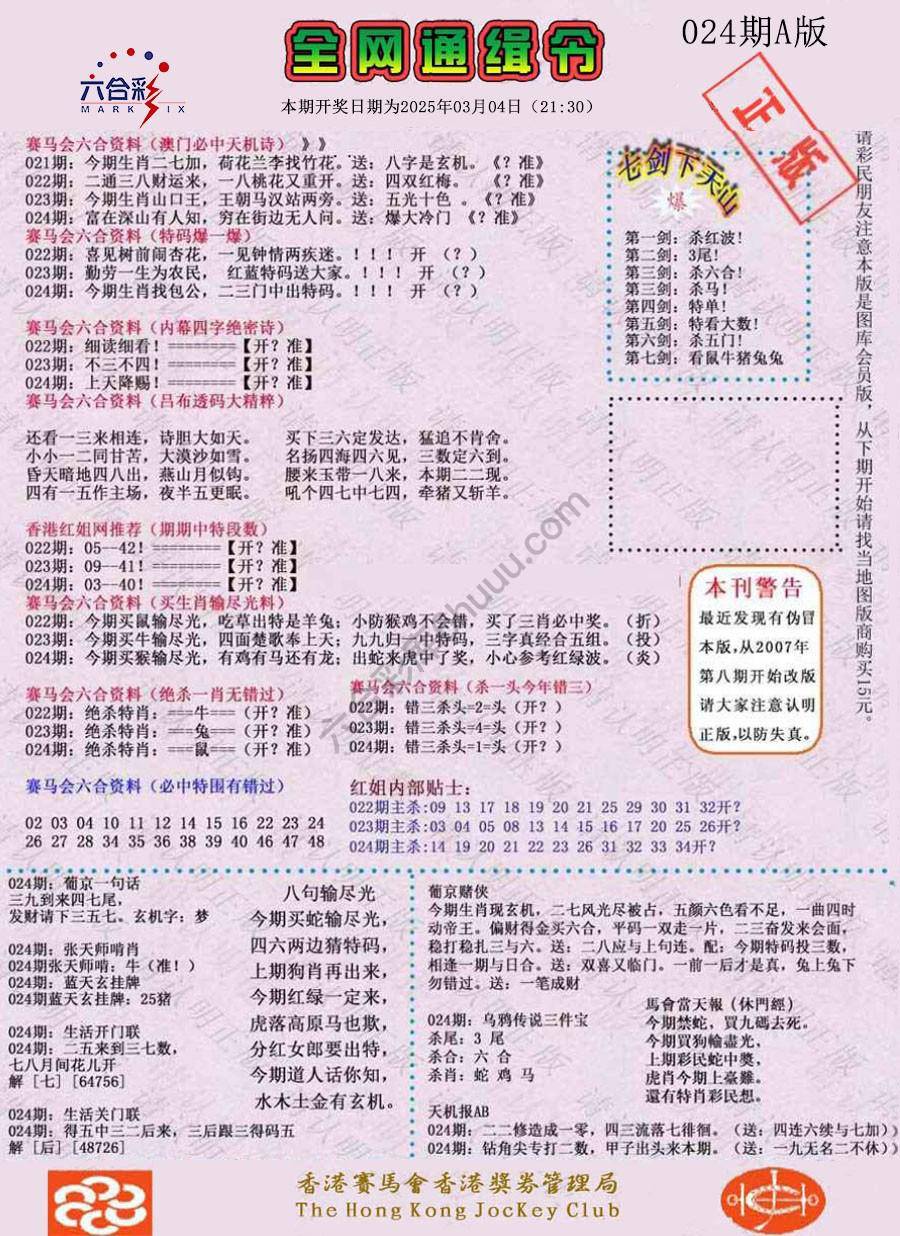 024期A版
全网通缉令
六合彩
MARK SIX
本期开奖日期为2025年03月04日（21:30）
正版
赛马会六合资料（澳门必中天机诗）》》
021期：今期生肖二七加，荷花兰李找竹花。送：八字是玄机。《？准》
022期：二通三八财运来，一八桃花又重开。送：四双红梅。 《？准》
023期：今期生肖山口王，王朝马汉站两旁。送：五光十色 。《？准》
024期：富在深山有人知，穷在街边无人问。送：爆大冷门 《？准》
赛马会六合资料（特码爆一爆）
022期：喜见树前闹杏花，一见钟情两疾迷。！！！！ 开 （？）
023期：勤劳一生为农民， 红蓝特码送大家。！！！！ 开 （？）
024期：今期生肖找包公，二三门中出特码。！！！！ 开 （？）
赛马会六合资料（内幕四字绝密诗）
022期：细读细看！========【开？准】
023期：不三不四！========【开？准】
024期：上天降赐！========【开？准】
赛马会六合资料（吕布透码大精粹）
还看一三来相连，诗胆大如天。 买下三六定发达，猛追不肯舍。
小小一二同甘苦，大漠沙如雪。 名扬四海四六见，三数定六到。
昏天暗地四八出，燕山月似钩。 腰来玉带一八来，本期二二现。
四有一五作主场，夜半五更眠。 吼个四七中七四，牵猪又斩羊。
香港红姐网推荐（期期中特段数）
022期：05--42！========【开？准】
023期：09--41！========【开？准】
024期：03--40！========【开？准】
赛马会六合资料（买生肖输尽光料）
022期：今期买鼠输尽光，吃草出特是羊兔；小防猴鸡不会错，买了三肖必中奖。（折）
023期：今期买牛输尽光，四面楚歌奉上天；九九归一中特码，三字真经合五组。（投）
024期：今期买猴输尽光，有鸡有马还有龙；出蛇来虎中了奖，小心参考红绿波。（炎）
赛马会六合资料（绝杀一肖无错过）
022期：绝杀特肖：===牛===（开？准）
023期：绝杀特肖：===兔===（开？准）
024期：绝杀特肖：===鼠===（开？准）
赛马会六合资料（杀一头今年错三）
022期：错三杀头=2=头（开？）
023期：错三杀头=4=头（开？）
024期：错三杀头=1=头（开？）
赛马会六合资料（必中特围有错过）
02 03 04 10 11 12 14 15 16 22 23 24
26 27 28 34 35 36 38 39 40 46 47 48
红姐内部贴士：
022期主杀:09 13 17 18 19 20 21 25 29 30 31 32开?
023期主杀:03 04 05 08 13 14 15 16 17 20 25 26开?
024期主杀:14 19 20 21 22 23 26 31 32 33 34开?
七剑下天山
爆
第一剑：杀红波！
第二剑：3尾！
第三剑：杀六合！
第三剑：杀马！
第四剑：特单！
第五剑：特看大数！
第六剑：杀五门！
第七剑：看鼠牛猪兔兔
本刊警告
最近发现有伪冒
本版，从2007年
第八期开始改版
请大家注意认明
正版，以防失真。
请彩民朋友注意本版是图库会员版，从下期开始请找当地图版商购买15元。
024期：葡京一句话
三九到来四七尾，
发财请下三五七。玄机字：梦
024期：张天师啃肖
024期张天师啃：牛（准！）
024期：蓝天玄挂牌
024期蓝天玄挂牌：25猪
024期：生活开门联
024期：二五来到三七数，
七八月间花儿开
解［七］[64756]
024期：生活关门联
024期：得五中三二后来，三后跟三得码五
解［后］[48726]
八句输尽光
今期买蛇输尽光，
四六两边猜特码，
上期狗肖再出来，
今期红绿一定来，
虎落高原马也欺，
分红女郎要出特，
今期道人话你知，
水木土金有玄机。
葡京赌侠
今期生肖现玄机，二七风光尽被占，五颜六色看不足，一曲四时
动帝王。偏财得金买六合，平码一双走一片，二三奋发来会面，
稳打稳扎三与六。送：二八应与上句连。配：今期特码投三数，
相逢一期与日合。送：双喜又临门。一前一后才是真，兔上兔下
勿错过。送：一笔成财
024期：乌鸦传说三件宝
杀尾：3 尾
杀合：六 合
杀肖：蛇 鸡 马
馬會當天報（休門經）
今期禁蛇，買九碼去死。
今期買狗輸盡光，
上期彩民蛇中獎，
虎肖今期上臺難。
還有特肖彩民想。
天机报AB
024期：二二修造成一零，四三流落七徘徊。（送：四连六续与七加）)
024期：钻角尖专打二数，甲子出头来本期。（送：一九无名二不休）)
香港賽馬會香港獎券管理局
The Hong Kong JocKey Club